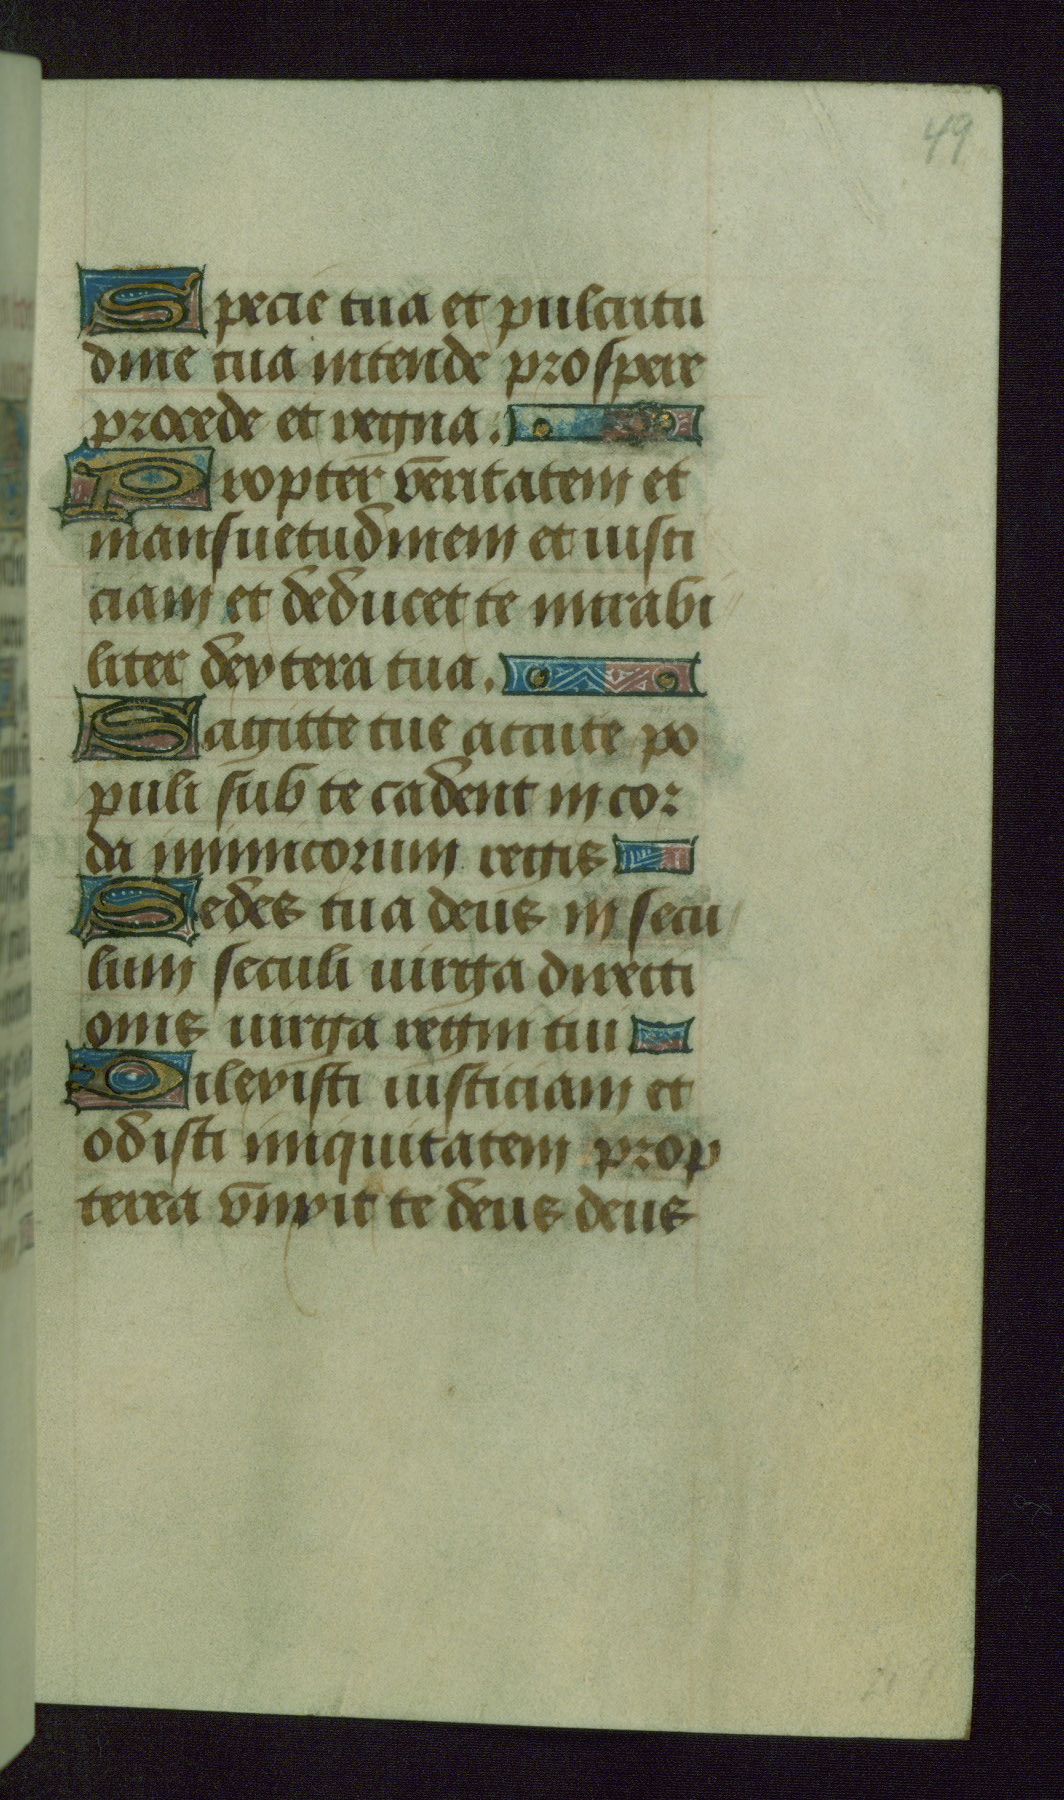 49
Specie tua et pulcritu
dine tua intende prospere
procede et regna.
Propter veritatem et
mansuetudinem et iusti
ciam et deducet te mirabi
liter dextera tua.
Sagitte tue accute po
puli sub te cadent in cor
da inimicorum regis
Sedes tua deus in secu
lum seculi uirga directi
onis uirga regni tui
Dilexisti iusticiam et
odisti iniquitatem prop
terea vnxit te deus deus